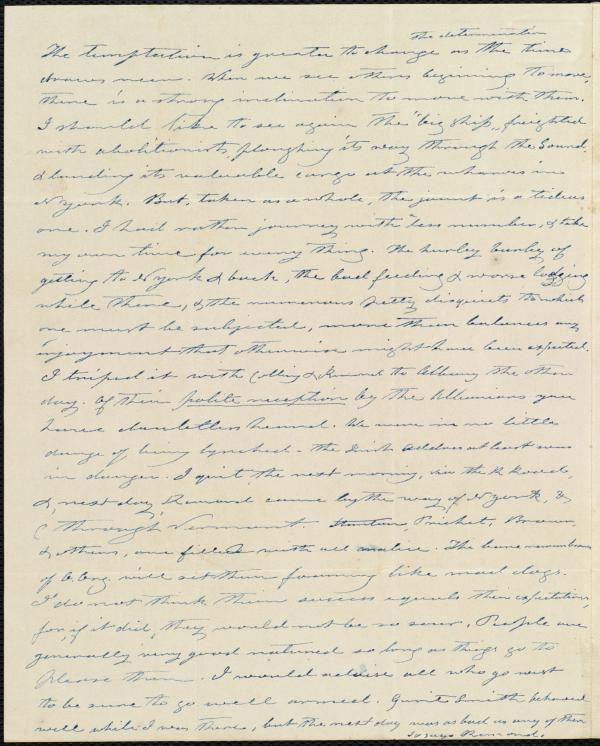 The determination
The temptation is greater to change as the time
draws near. When we see others begining to move,
there is a strong inclination to move with them.
I should like to see again the "big ship," freighted
with abolitionists, ploughing its way through the Sound,
& landing its valuable cargo at the wharves in
N York. But, taken as a whole, the jaunt is a tedious
one. I had rather journey with less number, & take
my own time for every thing. The hurley burley of
getting to N York & back, the bad feeding & worse lodging
while there, & the numerous petty disquiets to which
one must be subjected, more than balances any
injoyment that otherwise might have been expected.
I triped it with Collins & Remond to Albany the other
day. Of their polite reception by the Albanians you
have doubtless heard. We were in no little
danger of being lynched - the Irish Address at least was
in danger. I quit the next morning, via the R Road,
&, next day, Remond came by the way of N York, &
C through Vermont. Stanton, Prichet, Brown,
& others, are filled with all malice. The bare
of Org. will set them foaming like mad dogs.
I do not think their success equals their expectation,
for, if it did, they would not be so sour. People are
generally very good natured so long as things go to
please them. I would advise all who go west
to be sure to go well armed. Gerrit Smith behaved
well while I was there, but the next day was as bad as any of them
so says Remond.